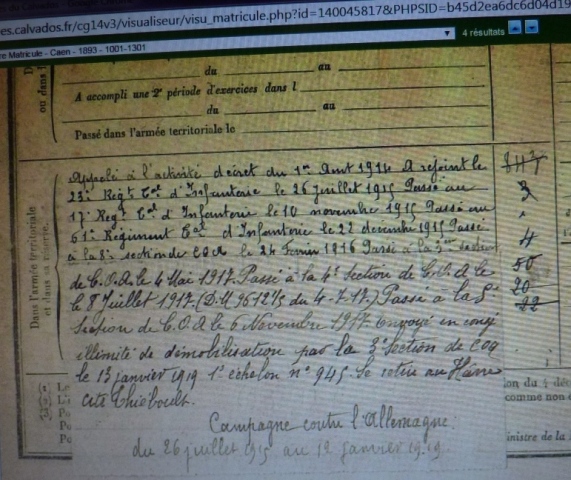 es.calvados.fr/cg14v3/visualiseur/visu_matricule.php?id=140045817&PHPSID=b45d2ea6dc6d04d19
4 résultats
re Matricule - Caen - 1893 - 1001-1301
ou dans l
du au
A accompli une 2e période d'exercices dans l
du au
Passé dans l'armée territoriale le
Dans l'armée territoriale
et dans sa réserve.
Appelé à l'activité décret du 1er Aout 1914 A rejoint le
23e Regt Tal d'Infanterie le 26 juillet 1915 Passé au
17e Regt Tal d'Infanterie le 10 novembre 1915 Passé au
61e Régiment Tal d'Infanterie le 22 décembre 1915 Passé
à la 8e section de COA le 24 Février 1916 Passé à la 3me section
de C.O.A le 4 Mai 1917. Passé à la 4e Section de C.O.A le
le 8 Juillet 1917. (D.M 9612 5/5 du 4-7-17.) Passé à la 5e
Section de C.O.A le 6 Novembre 1917 Envoyé en congé
illimité de démobilisation par la 3e Section de COA
le 13 janvier 1919 1er échelon n° 945. Se retire au Havre
Cité Thieboult.
Campagne contre l'Allemagne
du 26 juillet 1915 au 12 janvier 1919.
3
4
50
20
22
Le
Po
Pe
on du 4 déc
comme non
inistre de la